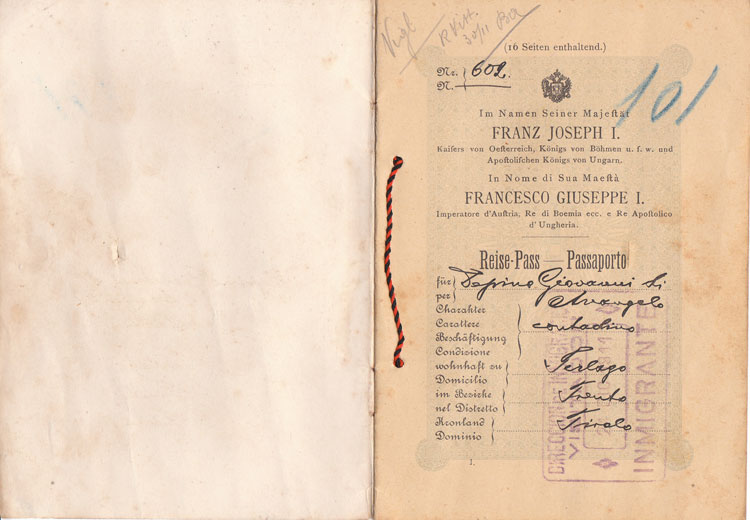 (16 Seiten enthaltend.)
Nr.
N. 602.
101
Im Namen Seiner Majeſtät
FRANZ JOSEPH I.
Kaiſers von Oeſterreich, Königs von Böhmen u. ſ. w. und
Apoſtoliſchen Königs von Ungarn.
In Nome di Sua Maeſtà
FRANCESCO GIUSEPPE I.
Imperatore d'Auſtria, Re di Boemia ecc. e Re Apoſtolico
d'Ungheria.
Reiſe-Paſs — Paſſaporto
für
per
Giovanni di
Charakter
Carattere contadino
Beſchäftigung
Condizione
wohnhaft zu
Domicilio Terlago
im Bezirke
nel Diſtretto Trento
Kronland
Dominio Tirolo
INMIGRANTE
1.